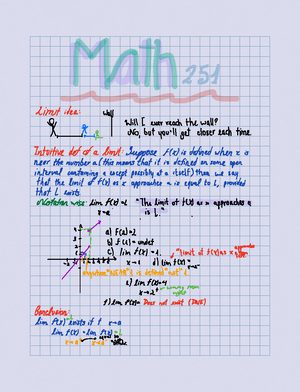 Math
251
Limit idea:
wall
Will I ever reach the wall?
No, but you'll get closer each time.
Intuitive def of a limit: Suppose f(x) is defined when x is
near the number a (this means that it is defined on some open
interval containing a except possibly at a itself) then we say
that the limit of f(x) as x approaches a is equal to L, provided
that L exists.
Notation wise: lim f(x)=L "The limit of f(x) as x approaches a
x→a is L."
a) f(2)=2
c) lim f(x)=
x→1
d) lim f(x)=
e) lim f(x)=4
x→2⁺
coming from
right
f) lim f(x)= Does not exist (DNE)
Conclusion:
lim f(x) exists if f
lim f(x) = lim f(x) = L